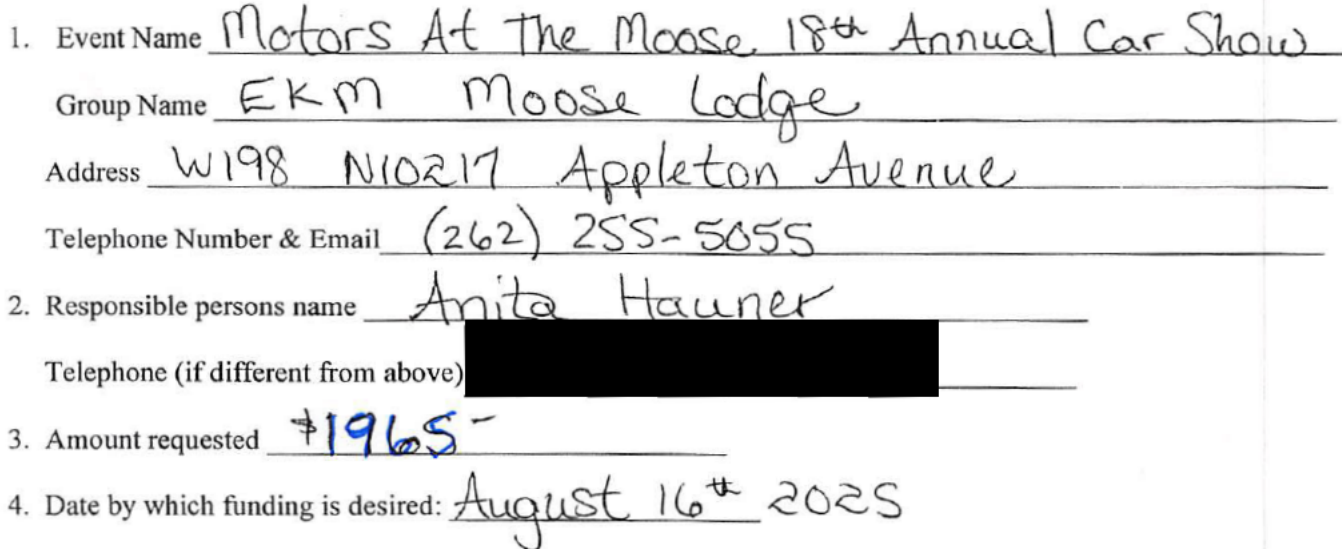 1. Event Name Motors At The Moose 18th Annual Car Show
Group Name EKM Moose Lodge
Address W198 N10217 Appleton Avenue
Telephone Number & Email (262) 255-5055
2. Responsible persons name Anita Hauner
Telephone (if different from above)
3. Amount requested $1965-
4. Date by which funding is desired: August 16th 2025